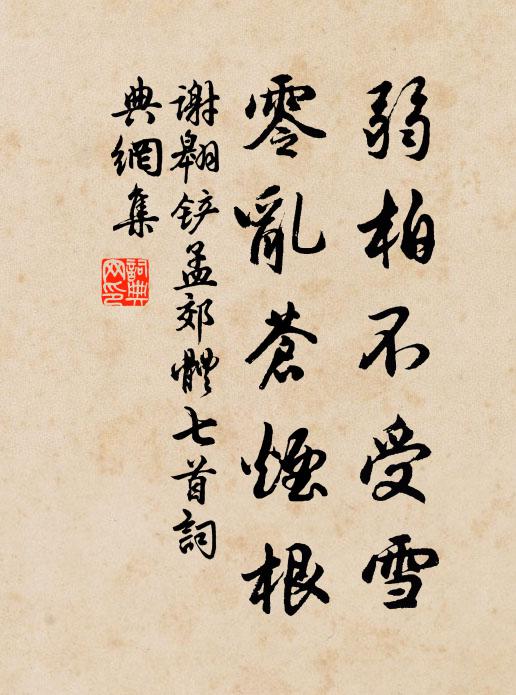 弱柏不受雪
零亂蒼煙根
谢翱铲孟郊體七首詞
典網集
詞典网印